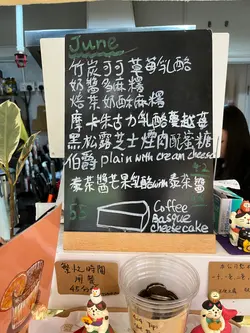 June
竹炭可可草莓乳酪
奶醬多麻糬
焙茶奶酥麻糬
摩卡朱古力乳酪蔓越莓
黑松露芝士煙肉配蜜糖
伯爵 plain with cream cheese
+2
麦茶醬芒果乳酪with麦茶醬
Coffee
Basque
cheesecake
整悅時間
用餐